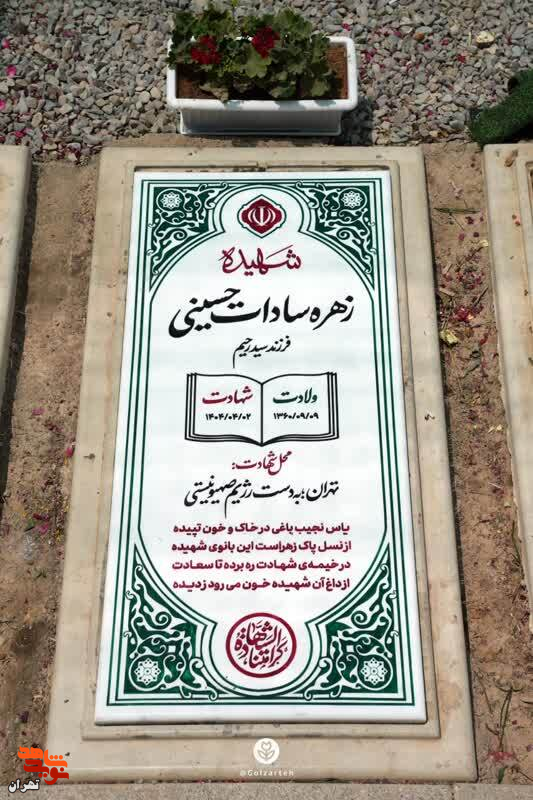 شهیده
زهره سادات حسینی
فرزند سید رحیم
ولادت
۱۳۶۰/۰۹/۰۹
شهادت
۱۴۰۴/۰۴/۰۲
محل شهادت:
تهران؛ به دست رژیم صهیونیستی
یاس نجیب باغی در خاک و خون تپیده
از نسل پاک زهراست این بانوی شهیده
در خیمه‌ی شهادت ره برده تا سعادت
از داغ آن شهیده خون می رود ز دیده
کرامتنا الشهادة
نوید شاهد
تهران
@Golzarteh